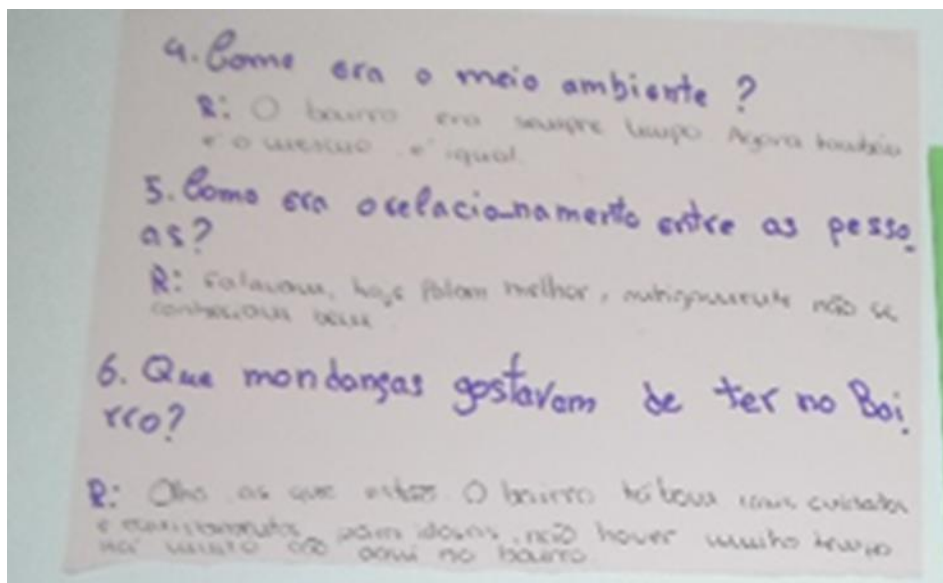 4. Como era o meio ambiente?
R: O bairro era sempre limpo. Agora também
é o mesmo é igual.
5. Como era o relacionamento entre as pesso
as?
R: Falavam, hoje falam melhor, antigamente não se
conheciam bem
6. Que mondanças gostavam de ter no Bai
rro?
R: Olho as que estão. O bairro tá bom mais cuidados
e para idosos, não hover muito tempo
há muito cão aqui no bairro.